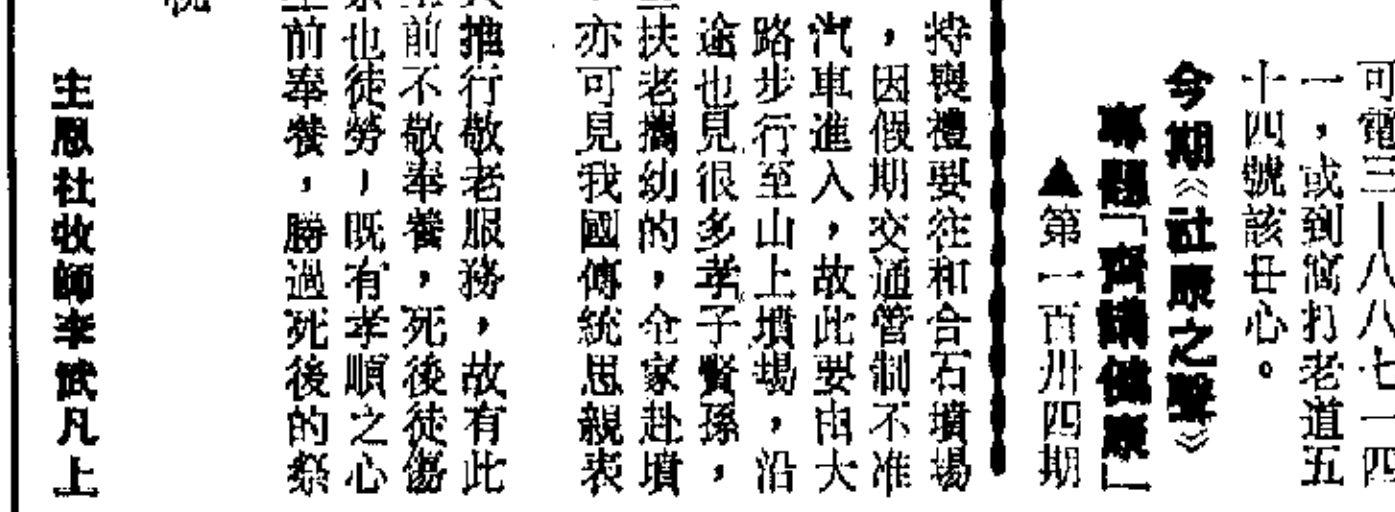 可電三—八八七一四
一，或到窩打老道五
十四號該中心。
今期《社康之聲》
專題「齊講健康」
▲第一百卅四期
持喪禮要往和合石墳場
，因假期交通管制不准
汽車進入，故此要由大
路步行至山上墳場，沿
途也見很多孝子賢孫，
扶老攜幼的，全家赴墳
亦可見我國傳統思親表
推行敬老服務，故有此
前不敬奉養，死後徒傷
也徒勞，既有孝順之心
前奉養，勝過死後的祭
主恩社牧師李武凡上